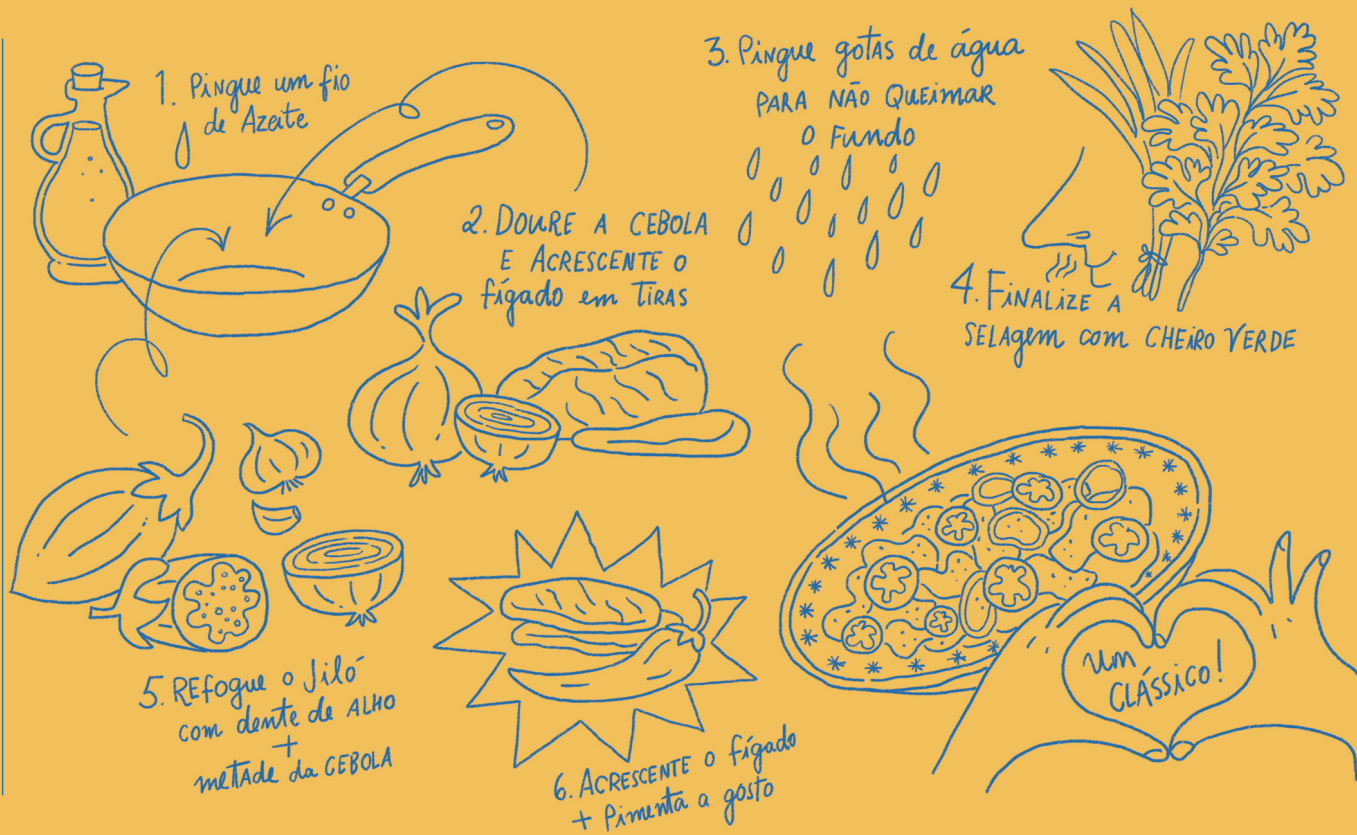 1. Pingue um fio
de Azeite
2. DOURE A CEBOLA
E ACRESCENTE O
fígado em TIRAS
3. Pingue gotas de água
PARA NÃO QUEIMAR
O Fundo
4. FINALIZE A
SELAGEM com CHEIRO VERDE
5. REfogue o Jiló
com dente de ALHO
+
metade da CEBOLA
6. ACRESCENTE O fígado
+ Pimenta a gosto
um
CLÁSSICO!